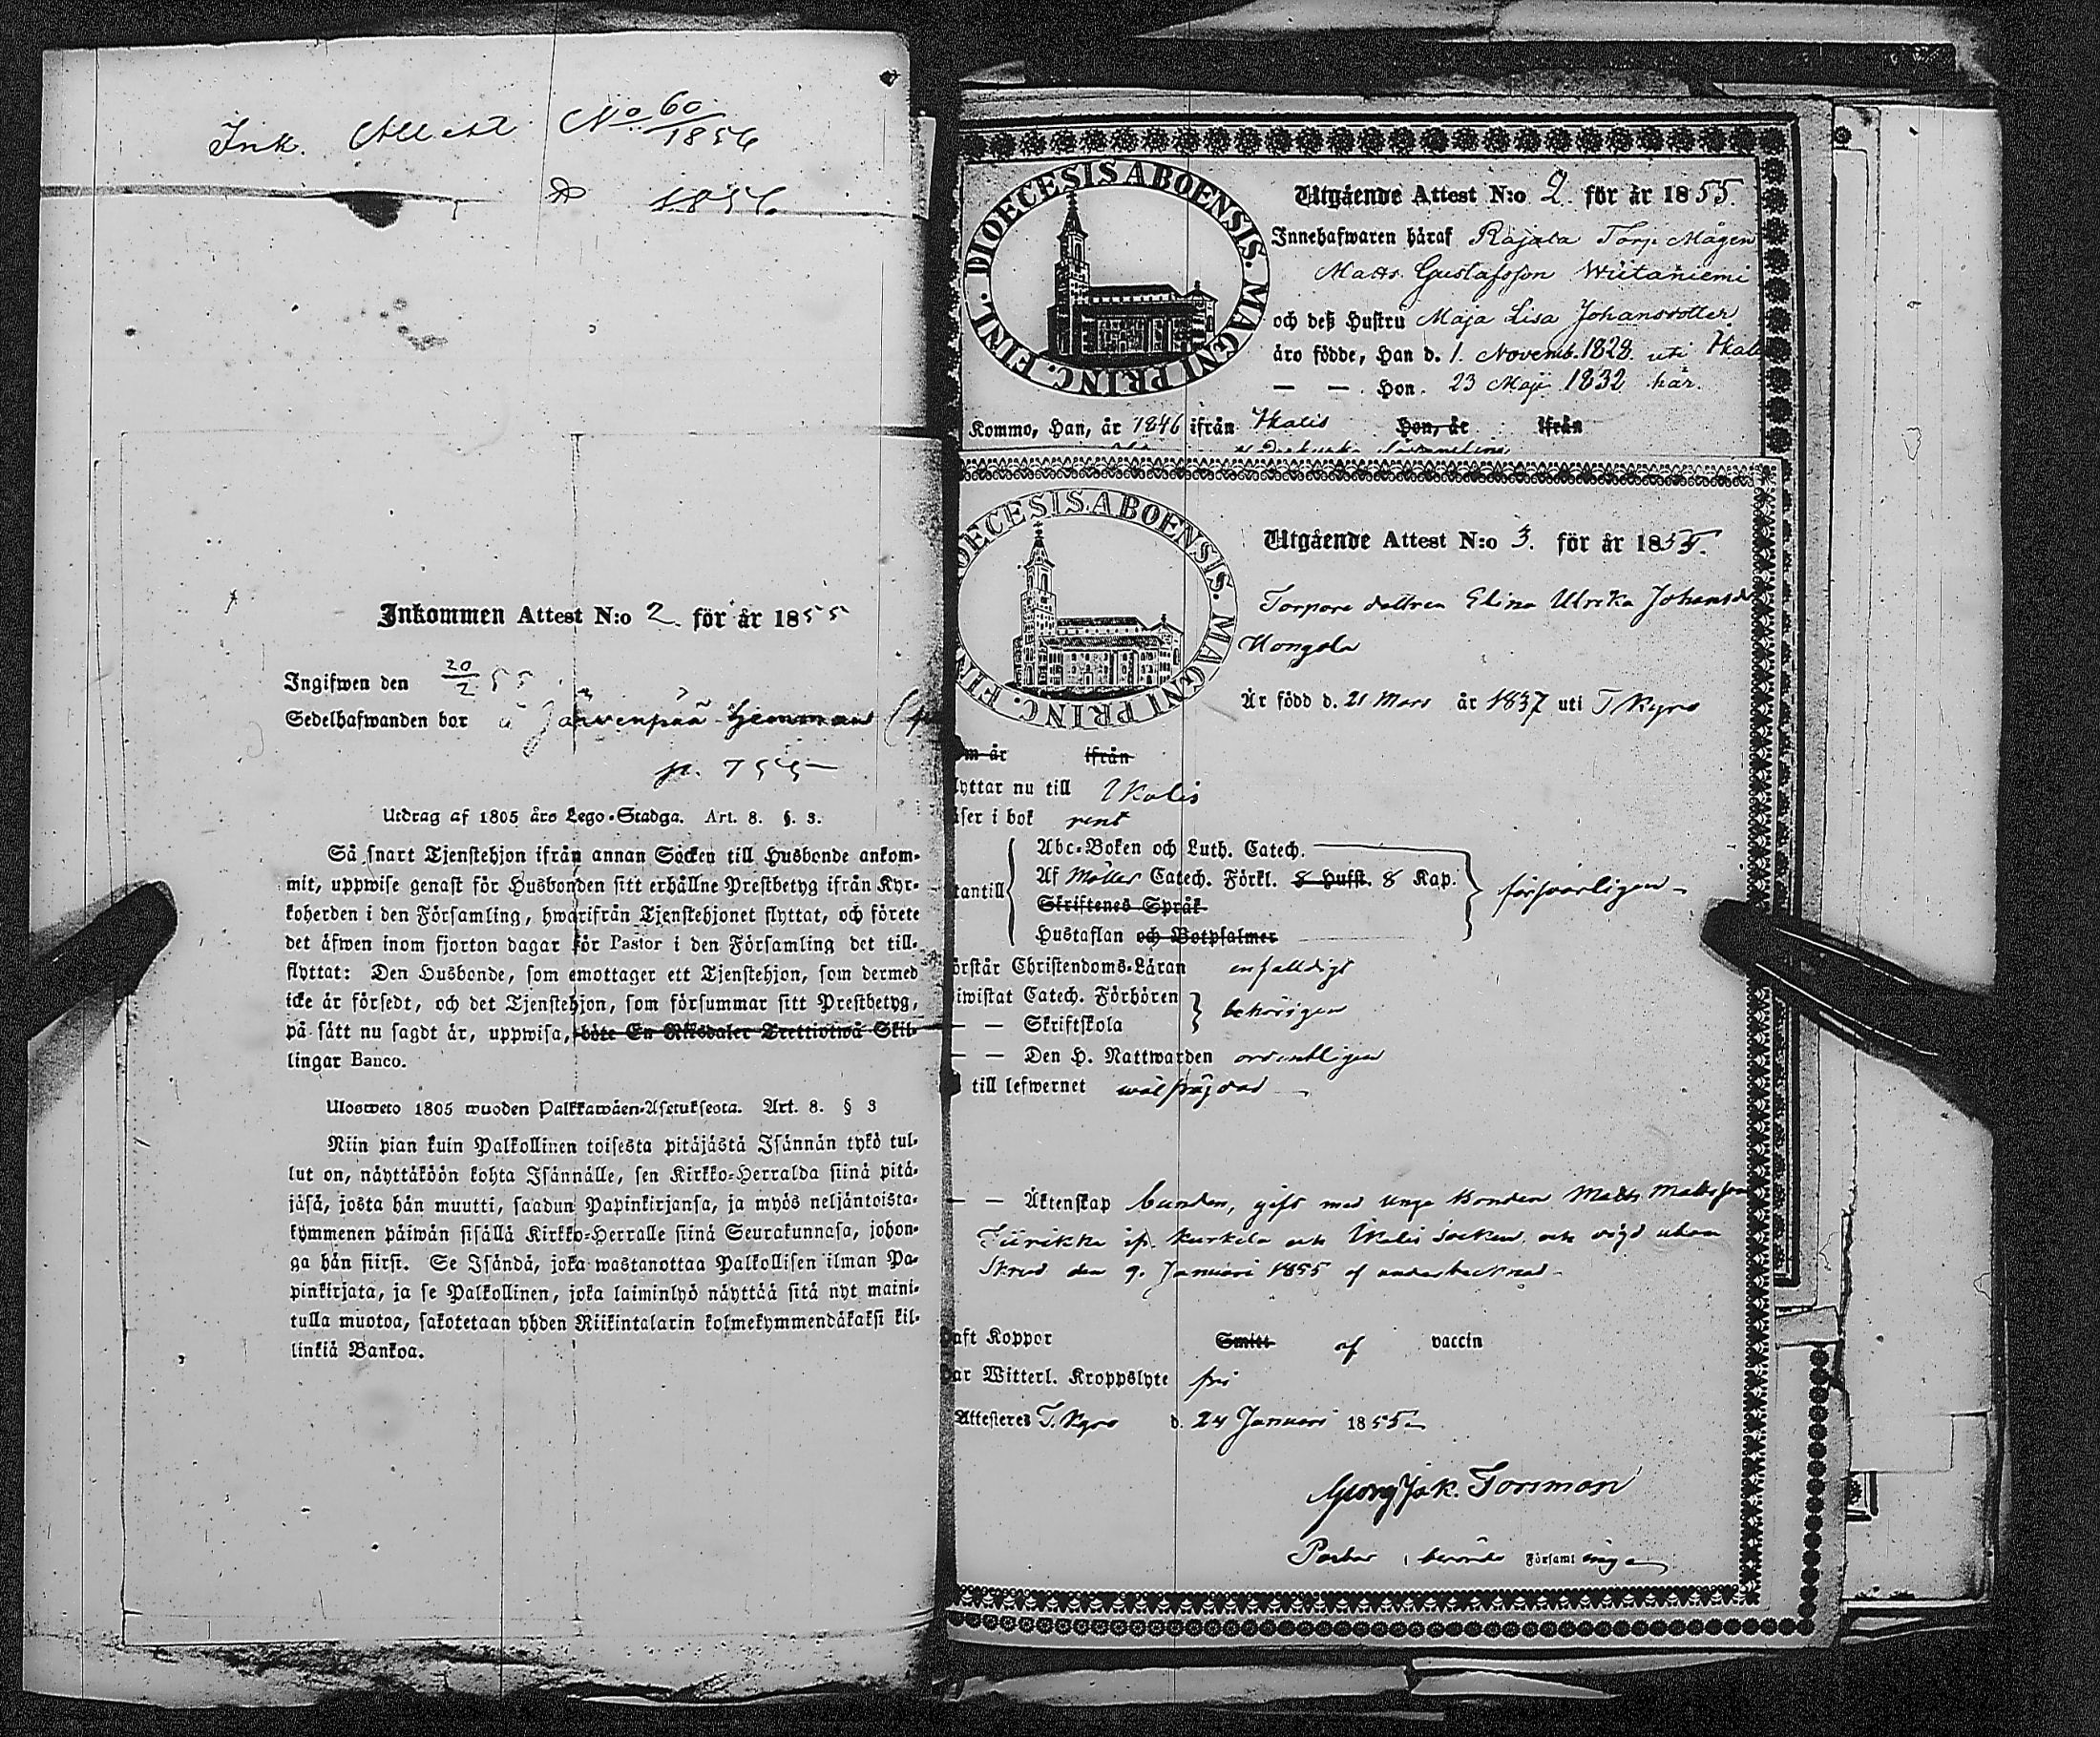 Ink. Attest No 60/1856
1856
Inkommen Attest N:o 2. för år 1855
Ingifwen den 20/2 55
Sedelhafwanden bor å Järvenpää hemman
p. 755
Utdrag af 1805 års Lego-Stadga. Art. 8. §. 3.
Så snart Tjenstehjon ifrån annan Socken till Husbonde ankom-
mit, uppwise genast för Husbonden sitt erhållne Prestbetyg ifrån Kyr-
koherden i den Församling, hwarifrån Tjenstehjonet flyttat, och förete
det äfwen inom fjorton dagar för Pastor i den Församling det till-
flyttat: Den Husbonde, som emottager ett Tjenstehjon, som dermed
icke är försedt, och det Tjenstehjon, som försummar sitt Prestbetyg,
på sätt nu sagdt är, uppwisa, böte En Riksdaler Trettiotwå Skil-
lingar Banco.
Ulosweto 1805 wuoden Palkkawäen-Asetuksesta. Art. 8. § 3
Niin pian kuin Palkollinen toisesta pitäjästä Isännän tykö tul-
lut on, näyttäköön kohta Isännälle, sen Kirkko-Herralda siinä pitä-
jäsä, josta hän muutti, saadun Papinkirjansa, ja myös neljäntoista-
kymmenen päiwän sisällä Kirkko-Herralle siinä Seurakunnasa, johon-
ga hän siirsi. Se Isändä, joka wastanottaa Palkollisen ilman Pa-
pinkirjata, ja se Palkollinen, joka laiminlyö näyttää sitä nyt maini-
tulla muotoa, sakotetaan yhden Riikintalarin kolmekymmendäkaksi kil-
linkiä Bankoa.
DIOECESIS ABOENSIS. MAGNI PRINC. FINL.
Utgående Attest N:o 2. för år 1855.
Innehafwaren häraf Rajala Torp Mågen
Matts Gustafsson Wiitaniemi
och deß Hustru Maja Lisa Johansdotter
äro födde, Han d. 1. Novemb. 1828. uti Ikali
— — Hon. 23 Maji 1832 här.
Kommo, Han, år 1846 ifrån Ikalis Hon, år ifrån
OECESIS ABOENSIS. MAGNI PRINC. FIN
Utgående Attest N:o 3. för år 1855.
Torpare dottren Elina Ulrika Johansd
Kongola
Är född d. 21 Mars år 1837 uti T Kyro
m år ifrån
lyttar nu till Ikalis
äser i bok rent
Abc-Boken och Luth. Catech.
tantill Af Möller Catech. Förkl. 8 Hufst. 8 Kap. försvarligen
Skriftenes Språk
Hustaflan och Botpsalmer
örstår Christendoms-Läran enfalldigt
iwistat Catech. Förhören behörigen
— — Skriftskola
— — Den H. Nattwarden ordentligen
till lefwernet wälfräjdad
— — Äktenskap bunden, gift med unge Bonden Matts Mattsson
Tiirikka ifr. Kurkela och Ikalis socken, och vigd utan
Skrud den 9. Januari 1855 af undertecknad
aft Koppor Smitt af vaccin
ar Witterl. Kroppslyte fri
Attesteres T. Kyro d. 24 Januari 1855
Georg Jak. Forsman
Pastor i berörde Församlingen